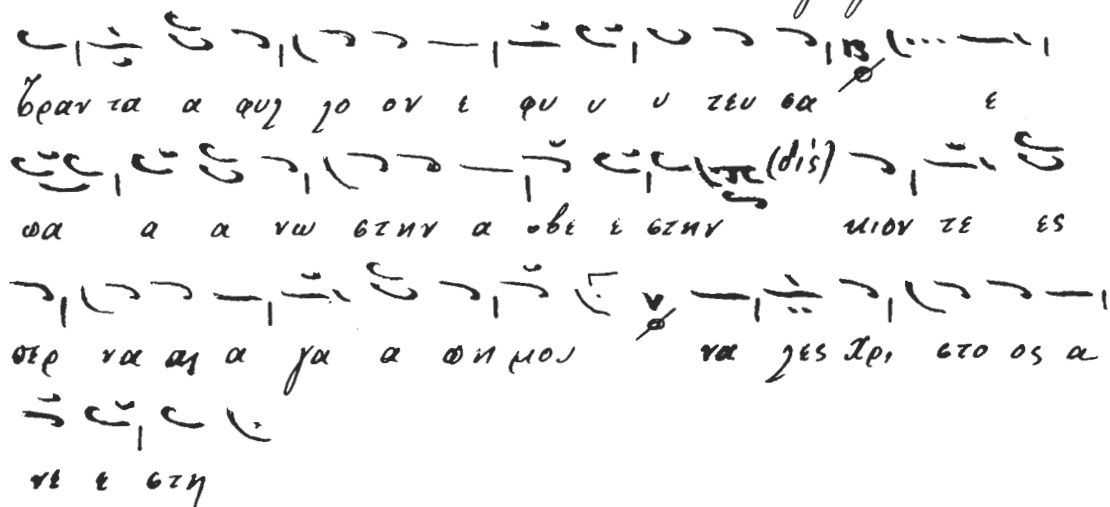 Τραν τα α φυλ λο ον ε φυ υ υ τευ σα ε
πα α α νω στην α σβε ε στην (δις) κιον τε ες
περ να αη α γα α πη μου να λες Χρι στο ος α
νε ε στη